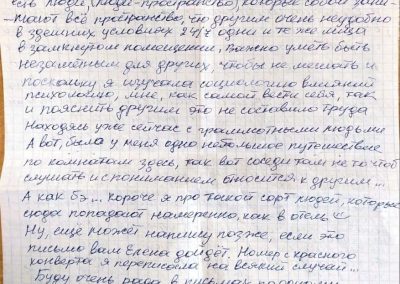 есть люди (люди-пространство) которые собой зани-
-мают всё пространство, что другим очень неудобно
в здешних условиях 24/7 одни и те же лица
в замкнутом помещении. Важно уметь быть
незаметным для других, чтобы не мешать и
поскольку я изучала социологию влияний
психологию, мне, как самой вести себя, так
и пояснить другим это не составило труда
Находясь уже сейчас с граммотными людьми
А вот, была у меня одно небольшое путешествие
по комнатам здесь, так вот соседи там не то чтоб
слушать и с пониманием относится к другим...
А как бэ... короче я про такой сорт людей, которые
сюда попадают намеренно, как в отель
Ну, ещё может напишу позже, если это
письмо вам Елена дойдёт. Номер с красного
конверта я переписала на всякий случай...
Буду очень рада в письмах